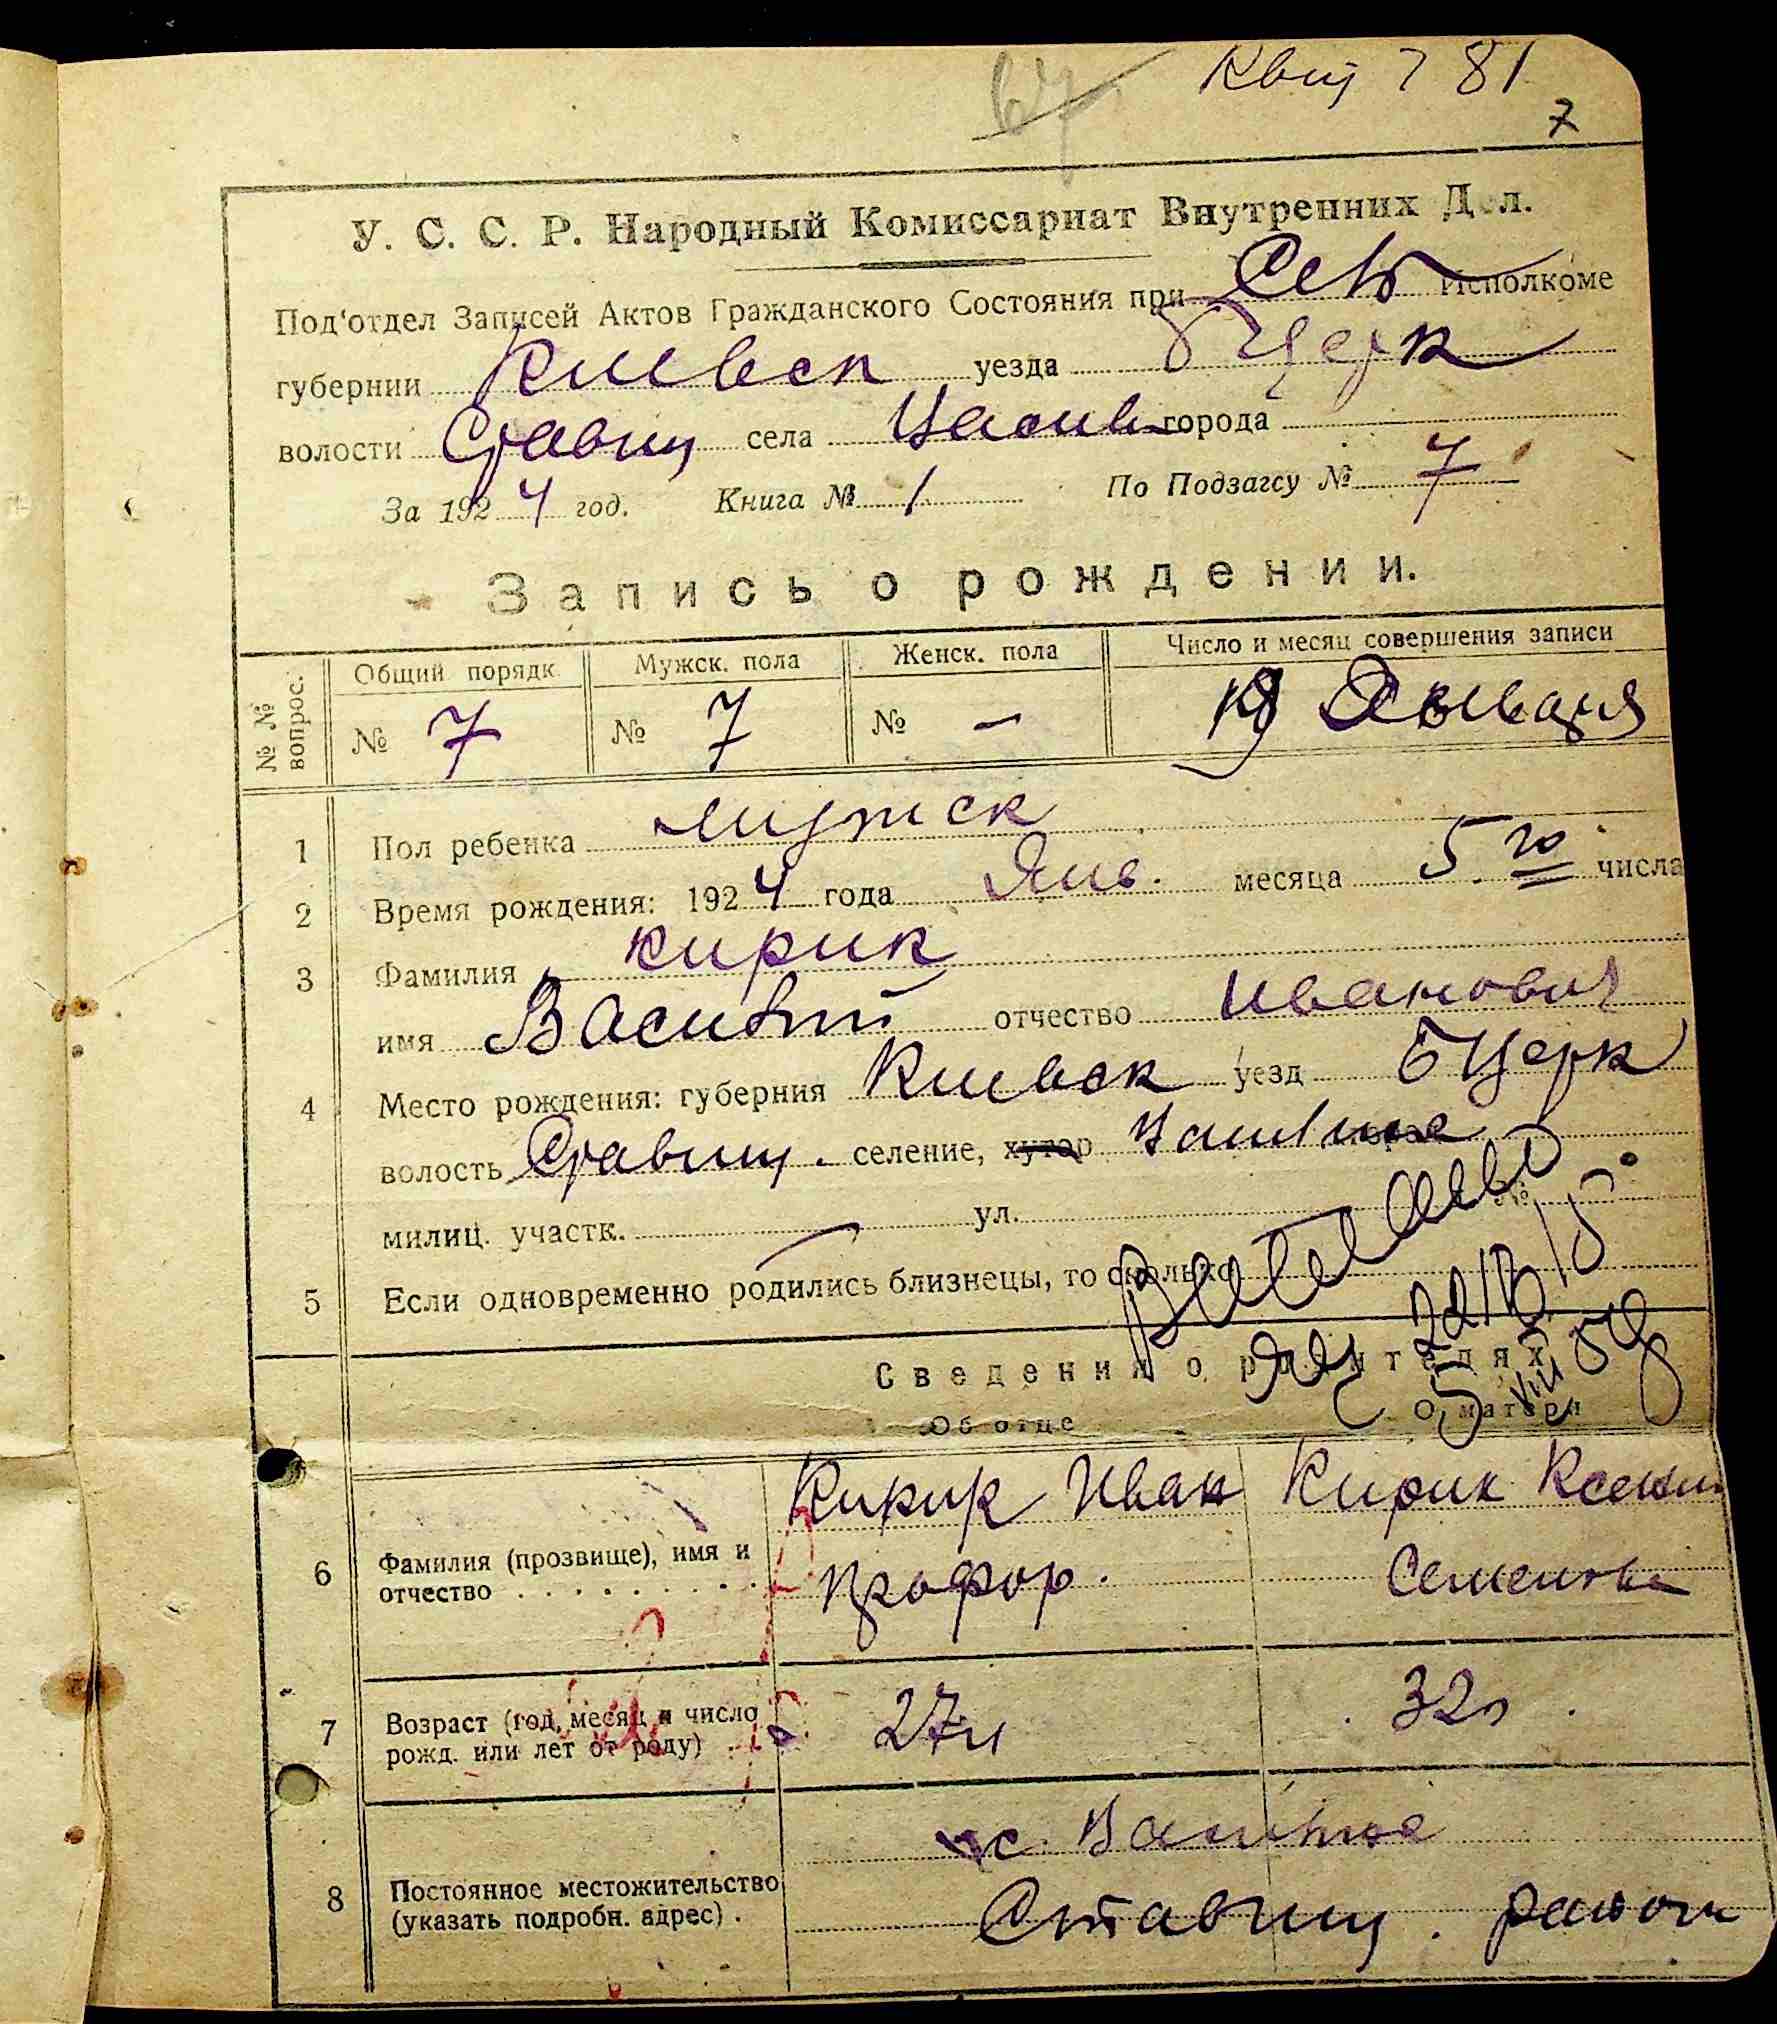 67
7 81
7
У. С. С. Р. Народный Комиссариат Внутренних Дел.
Под'отдел Записей Актов Гражданского Состояния при Исполкоме
губернии Киевск уезда БЦерк
волости Ставищ села города
За 1924 год. Книга № 1 По Подзагсу № 7
Запись о рождении.
№ № вопрос.
Общий порядк Мужск. пола Женск. пола Число и месяц совершения записи
№ 7 № 7 № —
1 Пол ребенка мужск
2 Время рождения: 1924 года Янв. месяца 5го числа
3 Фамилия Кирик
имя Василий отчество Иванович
4 Место рождения: губерния Киевск уезд БЦерк
волость Ставищ. селение, хутор
милиц. участк. — ул. №
5 Если одновременно родились близнецы, то сколько
Сведения о родителях
Об отце О матери
Кирик Иван Кирик Ксения
6 Фамилия (прозвище), имя и
отчество Семенова
7 Возраст (год, месяц и число
рожд. или лет от роду) 27л 32л
с.
8 Постоянное местожительство
(указать подробн. адрес) Ставищ. район